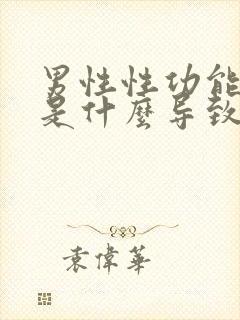 男性性功能
是什麼导致
袁偉華